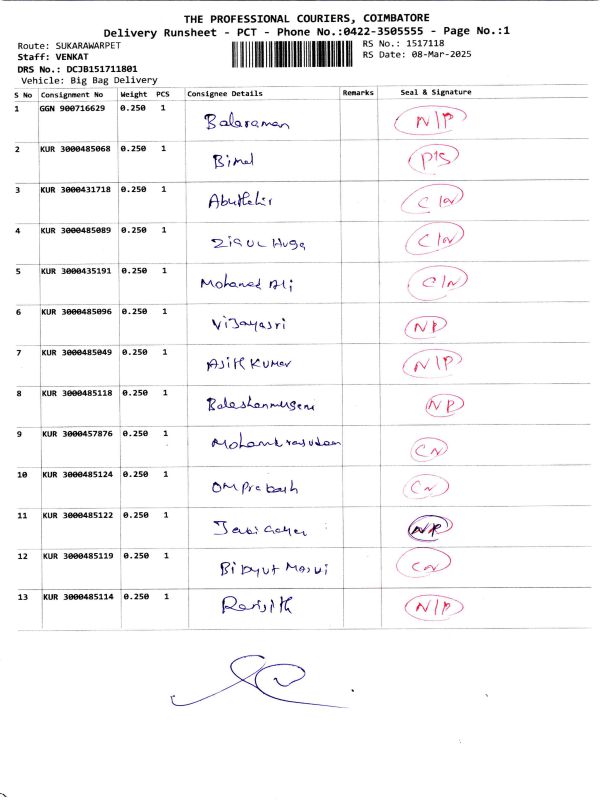 THE PROFESSIONAL COURIERS, COIMBATORE
Delivery Runsheet - PCT - Phone No.:0422-3505555 - Page No.:1
Route: SUKARAWARPET RS No.: 1517118
Staff: VENKAT RS Date: 08-Mar-2025
DRS No.: DCJB151711801
Vehicle: Big Bag Delivery
S No Consignment No Weight PCS Consignee Details Remarks Seal & Signature
1 GGN 900716629 0.250 1 Balaraman N/P
2 KUR 3000485068 0.250 1 Bimal
3 KUR 3000431718 0.250 1 C/N
4 KUR 3000485089 0.250 1 ZiaUL Huqa C/N
5 KUR 3000435191 0.250 1 Mohamed Ali C/N
6 KUR 3000485096 0.250 1 Vijayasri NP
7 KUR 3000485049 0.250 1 Asith Kumar N/P
8 KUR 3000485118 0.250 1 NP
9 KUR 3000457876 0.250 1 CN
10 KUR 3000485124 0.250 1 OM Prakash CN
11 KUR 3000485122 0.250 1 NP
12 KUR 3000485119 0.250 1 Bidyut CN
13 KUR 3000485114 0.250 1 N/P